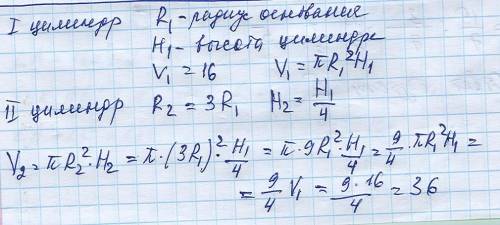 I цилиндр R₁ - радиус основания
H₁ - высота цилиндра
V₁ = 16 V₁ = πR₁²H₁
II цилиндр R₂ = 3R₁ H₂ = H₁/4
V₂ = πR₂²·H₂ = π·(3R₁)²·H₁/4 = π·9R₁²·H₁/4 = 9/4·πR₁²H₁ =
= 9/4 V₁ = 9·16/4 = 36